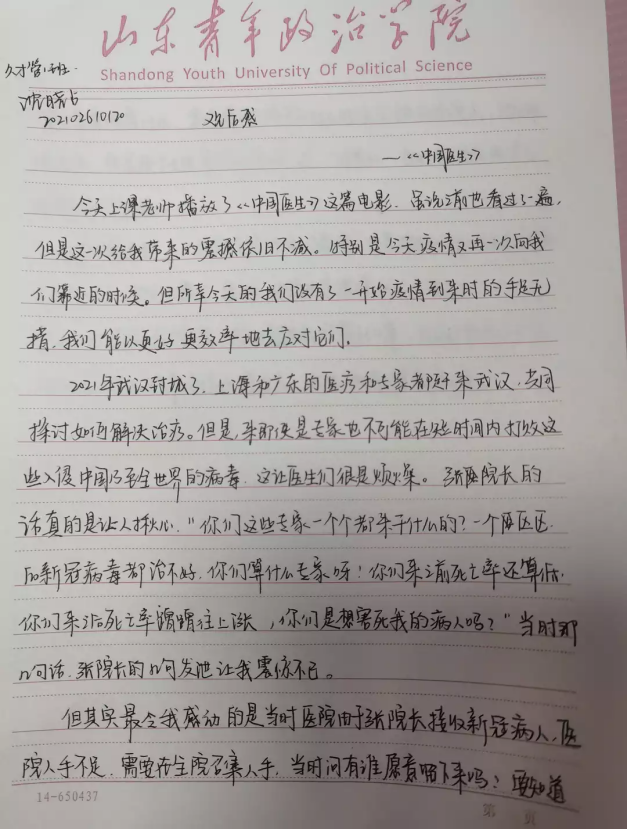 山东青年政治学院
Shandong Youth University Of Political Science
沈晓
202102610120
观后感
—《中国医生》
今天上课老师播放了《中国医生》这篇电影.虽说之前也看过了一遍,
但是这一次给我带来的震撼依旧不减。特别是今天疫情又再一次向我
们靠近的时候。但所幸今天的我们没有了一开始疫情到来时的手足无
措,我们能以更好更效率地去应对它们.
2021年武汉封城了.上海和广东的医疗和专家都赶来武汉,共同
探讨如何解决治疗。但是,即便是专家也不可能在短时间内打败这
些入侵中国乃至全世界的病毒.这让医生们很是烦燥。张医院长的
话真的是让人揪心."你们这些专家一个个都来干什么的?一个区区
的新冠病毒都治不好.你们算什么专家呀!你们来之前死亡率还算低.
你们来了后死亡率蹭蹭往上涨,你们是想害死我的病人吗?"当时那
几句话.张院长的几句发泄让我震惊不已。
但其实最令我感动的是当时医院由于张院长接收新冠病人,医
院人手不足.需要在全院召集人手,当时问有谁愿意留下来吗?要知道
14-650437
第 页